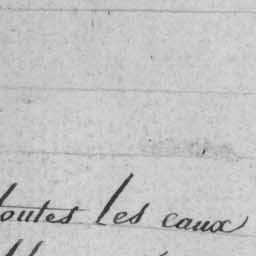 toutes les eaux